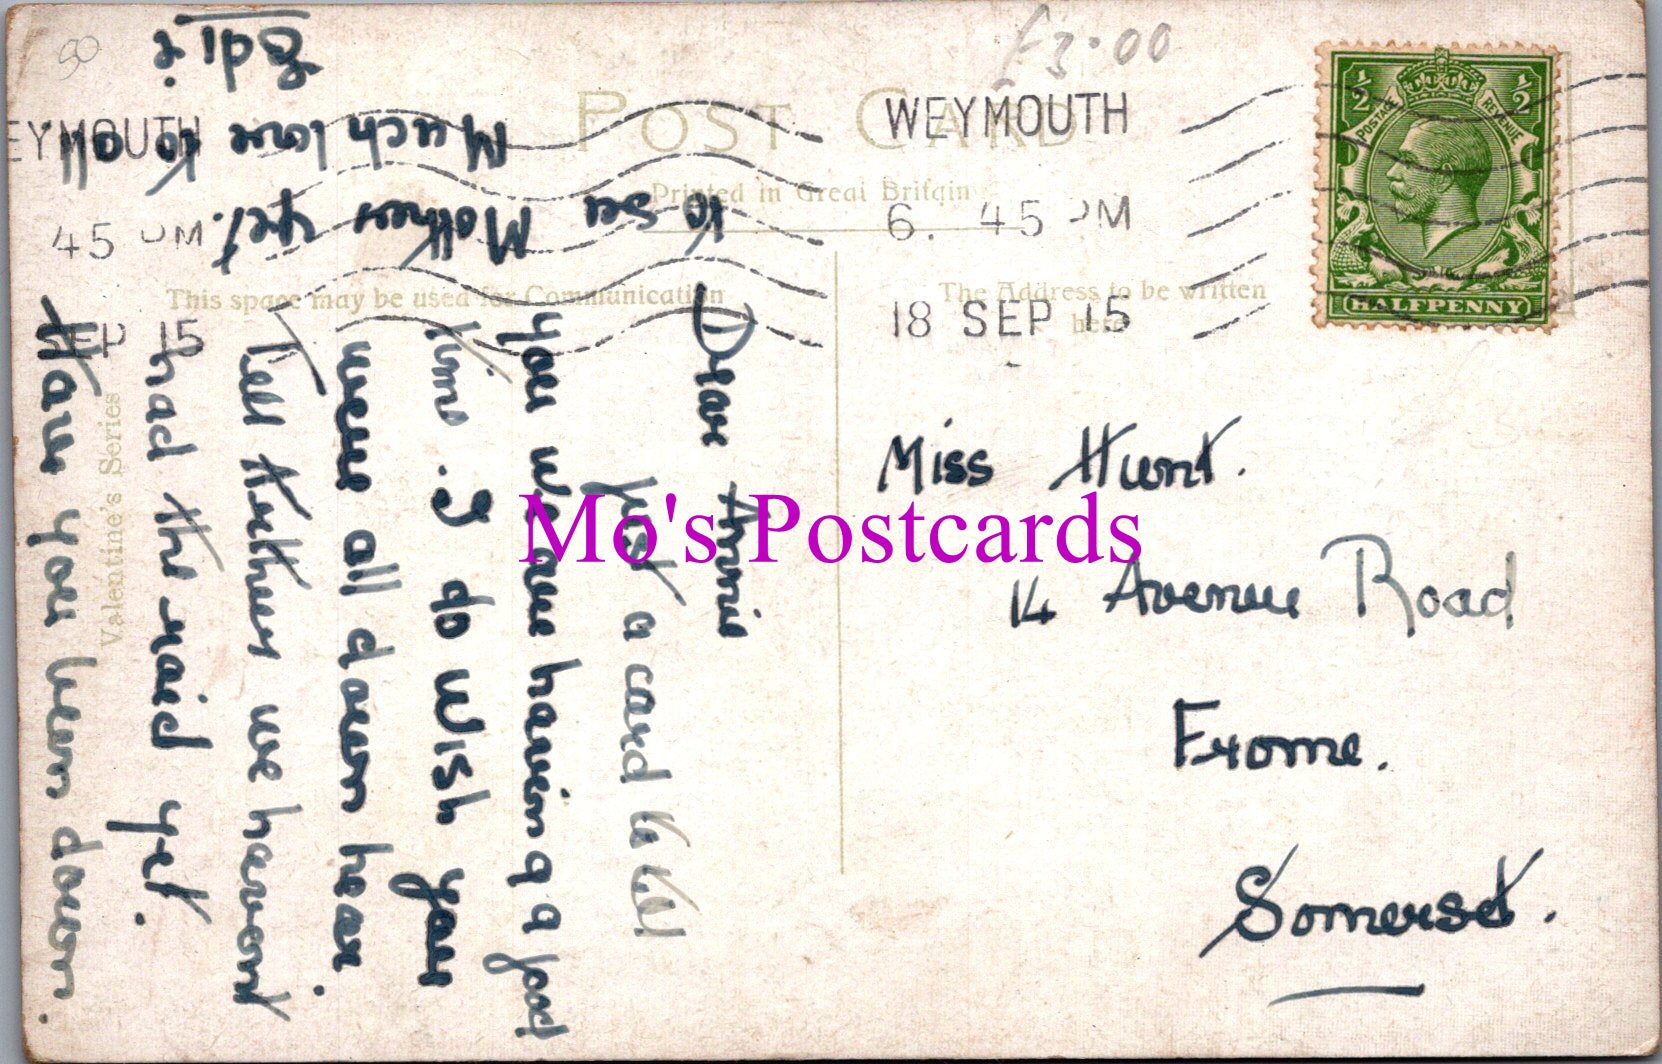 50
£3.00
POST CARD
Printed in Great Britain
This space may be used for Communication
The Address to be written
here
Valentine's Series
WEYMOUTH
6. 45 PM
18 SEP 15
EYMOUTH
45 PM
SEP 15
½ ½
POSTAGE REVENUE
HALFPENNY
Miss Hunt.
14 Avenue Road
Frome.
Somerset.
Dear Annie
Just a card to tell
you we are having a good
time. I do wish you
were all down hear.
Tell Arthur we havent
had the raid yet.
Have you been down
to see Mother yet.
Much love to all
Edie
Mo's Postcards